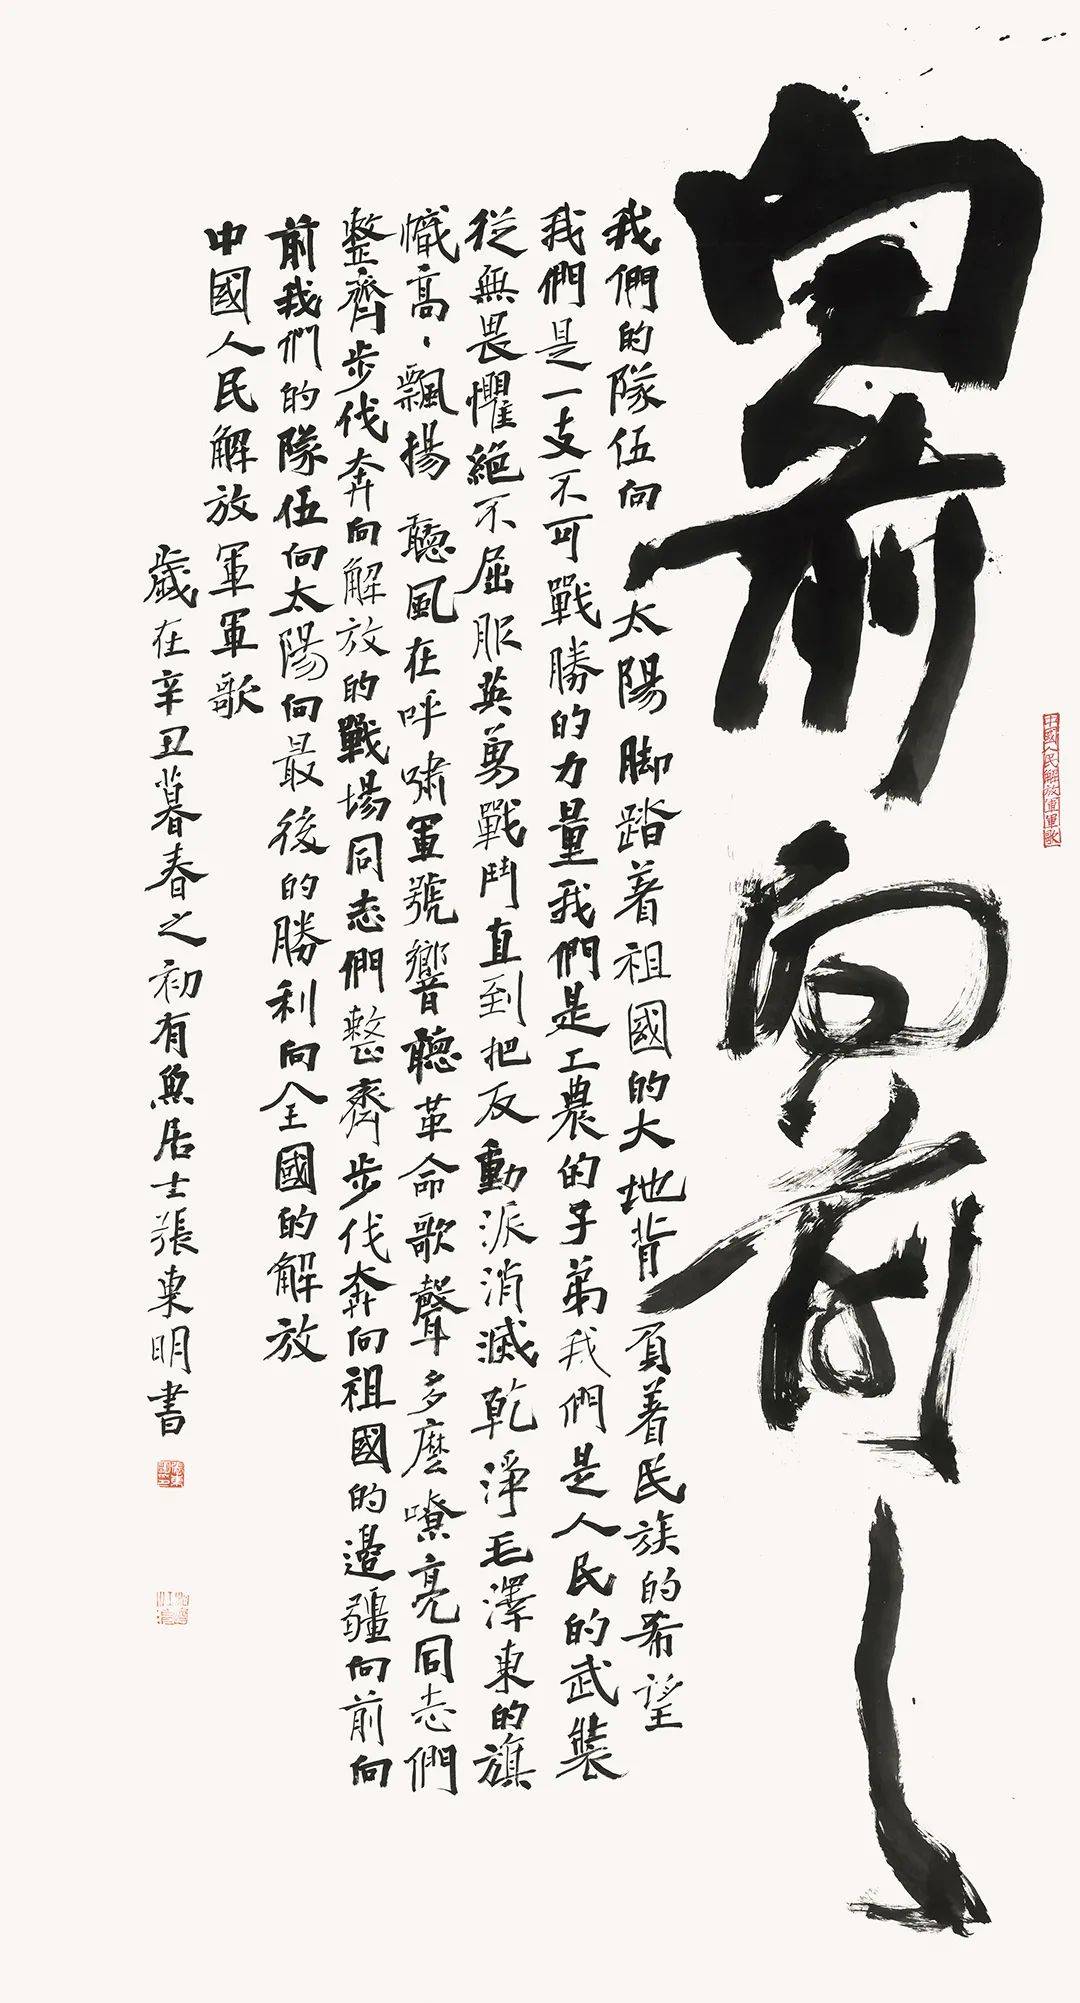 中國人民解放軍軍歌
向前向前
我們的隊伍向太陽脚踏着祖國的大地背負着民族的希望
我們是一支不可戰勝的力量我們是工農的子弟我們是人民的武裝
從無畏懼絕不屈服英勇戰鬥直到把反動派消滅乾淨毛澤東的旗
幟高、飄揚聽風在呼嘯軍號響聽革命歌聲多麼嘹亮同志們
整齊步伐奔向解放的戰場同志們整齊步伐奔向祖國的邊疆向前向
前我們的隊伍向太陽向最後的勝利向全國的解放
中國人民解放軍軍歌
歲在辛丑暮春之初有魚居士張東明書